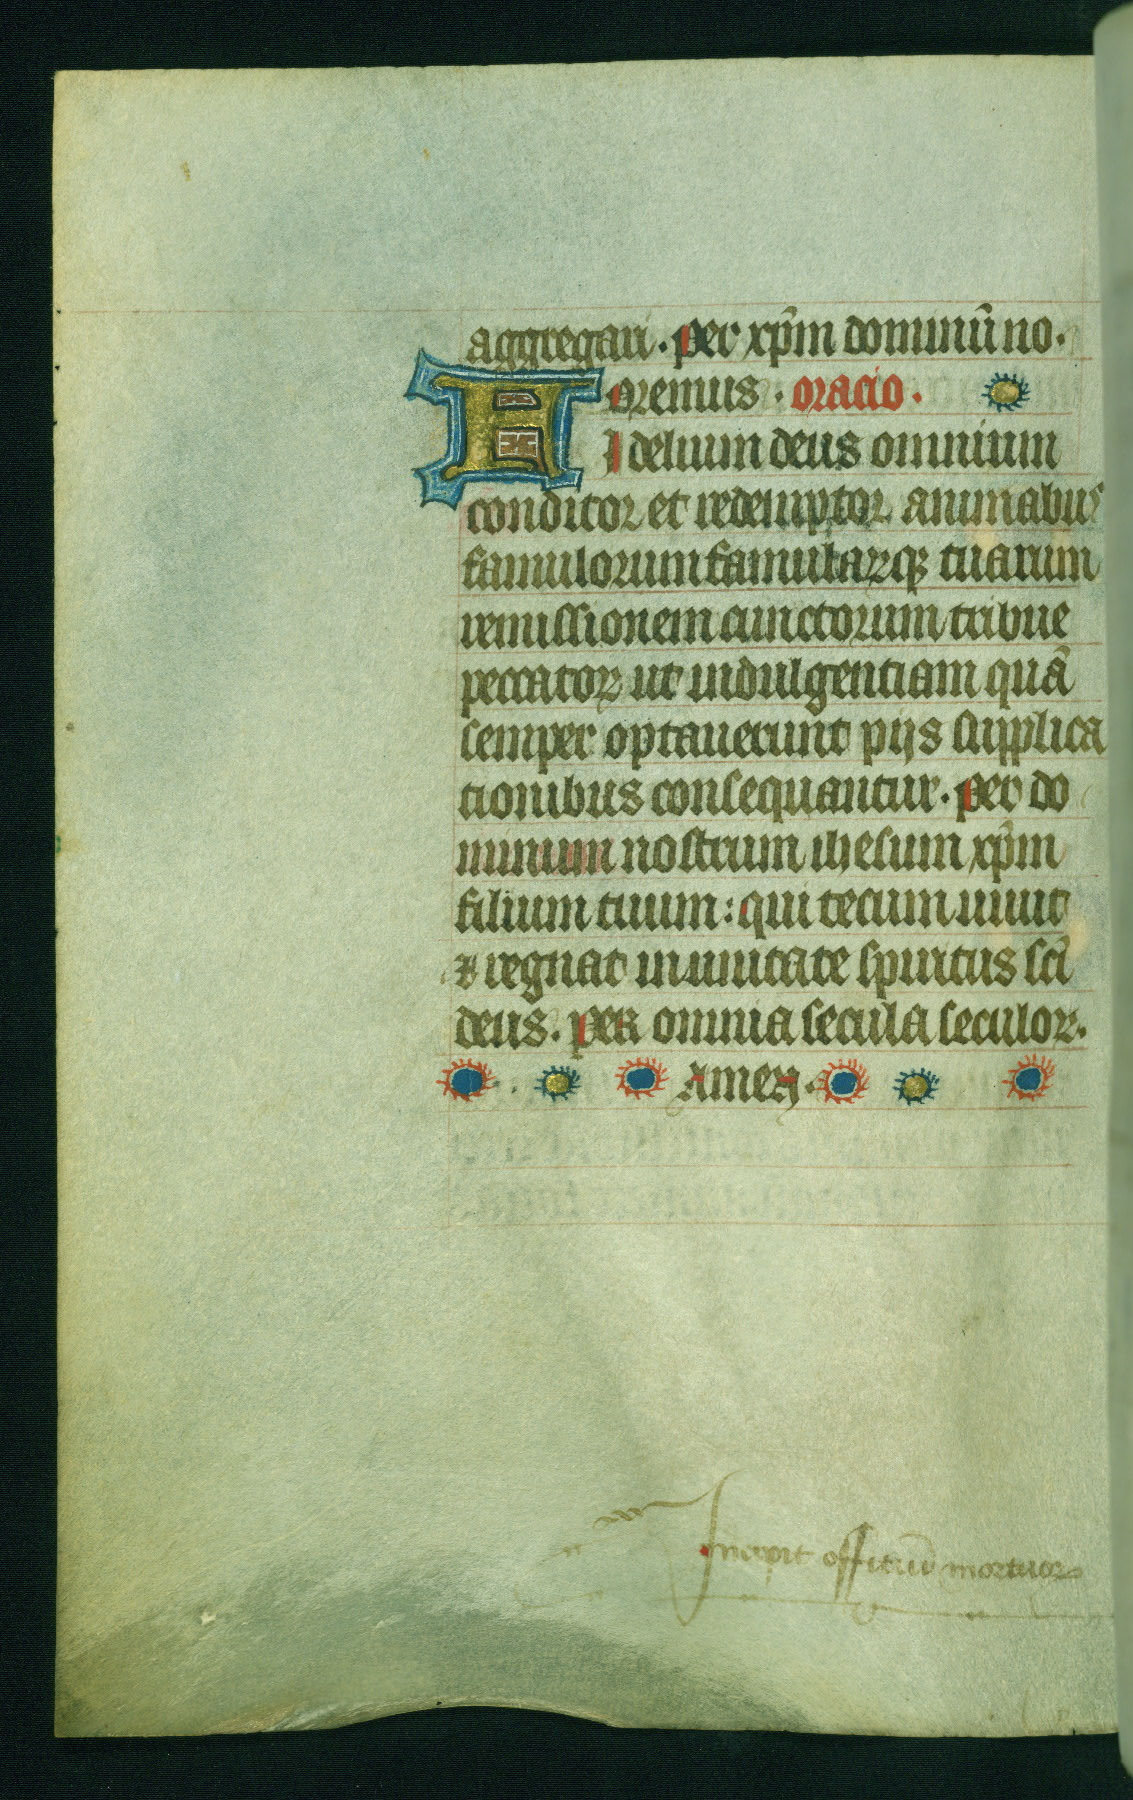 aggregari. per xp̄m dominū no.
oremus. oracio.
Fidelium deus omnium
conditor et redemptor animabus
famulorum famularꝝqꝫ tuarum
remissionem cunctorum tribue
peccatoꝝ ut indulgentiam quā
semper optauerunt pijs supplica
tionibus consequantur. per do
minum nostrum ihesum xp̄m
filium tuum: qui tecum uiuit
⁊ regnat in unitate spiritus sc̄i
deus. per omnia secula seculoꝝ.
Amen.
Incipit offitiū mortuoꝝ